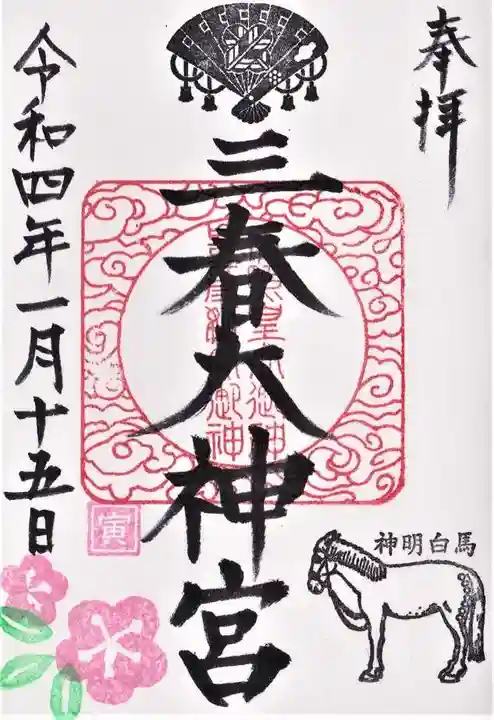 奉拝
三春大神宮
令和四年一月十五日
寅
神明白馬